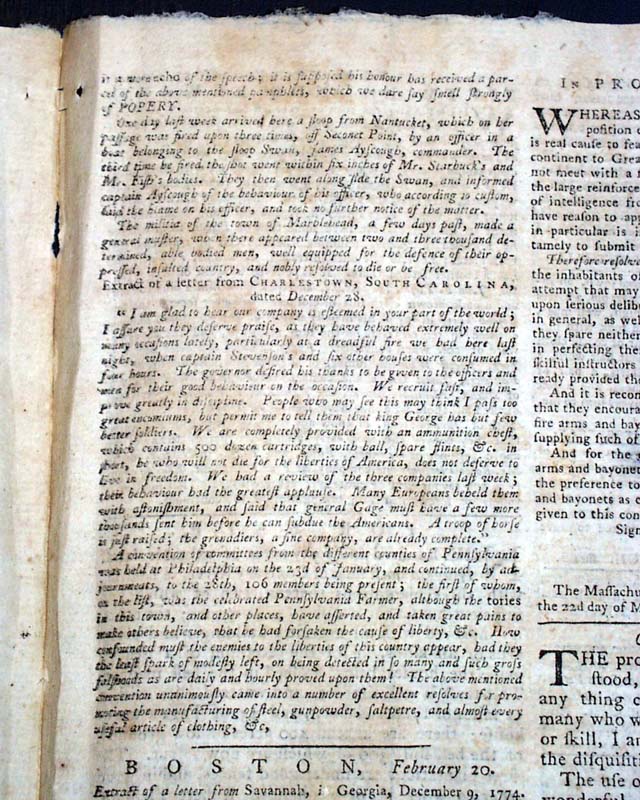 is a mere echo of the speech; it is supposed his honour has received a par-
cel of the above mentioned pamphlets, which we dare say smell strongly
of POPERY.
One day last week arrived here a sloop from Nantucket, which on her
passage was fired upon three times, off Seconet Point, by an officer in a
boat belonging to the sloop Swan, James Ayscough, commander. The
third time he fired the shot went within six inches of Mr. Starbuck's and
Mr. Fish's bodies. They then went along side the Swan, and informed
captain Ayscough of the behaviour of his officer, who according to custom,
laid the blame on his officer, and took no further notice of the matter.
The militia of the town of Marblehead, a few days past, made a
general muster, when there appeared between two and three thousand de-
termined, able bodied men, well equipped for the defence of their op-
pressed, insulted country, and nobly resolved to die or be free.
Extract of a letter from CHARLESTOWN, SOUTH CAROLINA,
dated December 28.
" I am glad to hear our company is esteemed in your part of the world;
I assure you they deserve praise, as they have behaved extremely well on
many occasions lately, particularly at a dreadful fire we had here last
night, when captain Stevenson's and six other houses were consumed in
four hours. The governor desired his thanks to be given to the officers and
men for their good behaviour on the occasion. We recruit fast, and im-
prove greatly in discipline. People who may see this may think I pass too
great encomiums, but permit me to tell them that king George has but few
better soldiers. We are completely provided with an ammunition chest,
which contains 500 dozen cartridges, with ball, spare flints, &c. in
short, he who will not die for the liberties of America, does not deserve to
live in freedom. We had a review of the three companies last week;
their behaviour had the greatest applause. Many Europeans beheld them
with astonishment, and said that general Gage must have a few more
thousands sent him before he can subdue the Americans. A troop of horse
is just raised; the grenadiers, a fine company, are already complete."
A convention of committees from the different counties of Pennsylvania
was held at Philadelphia on the 23d of January, and continued, by ad-
journments, to the 28th, 106 members being present; the first of whom,
on the list, was the celebrated Pennsylvania Farmer, although the tories
in this town, and other places, have asserted, and taken great pains to
make others believe, that he had forsaken the cause of liberty, &c. How
confounded must the enemies to the liberties of this country appear, had they
the least spark of modesty left, on being detected in so many and such gross
falshoods as are daily and hourly proved upon them! The above mentioned
convention unanimously came into a number of excellent resolves for pro-
moting the manufacturing of steel, gunpowder, saltpetre, and almost every
useful article of clothing, &c,
BOSTON, February 20.
Extract of a letter from Savannah, i Georgia, December 9, 1774.
IN PRO
WHEREAS
position
is real cause to fea
continent to Grea
not meet with a
the large reinforc
of intelligence fr
have reason to ap
in particular is i
tamely to submit
Therefore resolve
the inhabitants of
attempt that may
upon serious delib
in general, as wel
they spare neither
in perfecting the
skilful instructors
ready provided th
And it is recon
that they encoura
fire arms and bay
supplying such of
And for the
arms and bayonet
the preference to
and bayonets as c
given to this con
Sign
The Massachu
the 22d day of M
THE pro
stood,
any thing c
many who w
or skill, I an
the disquisiti
The use o
wonderful